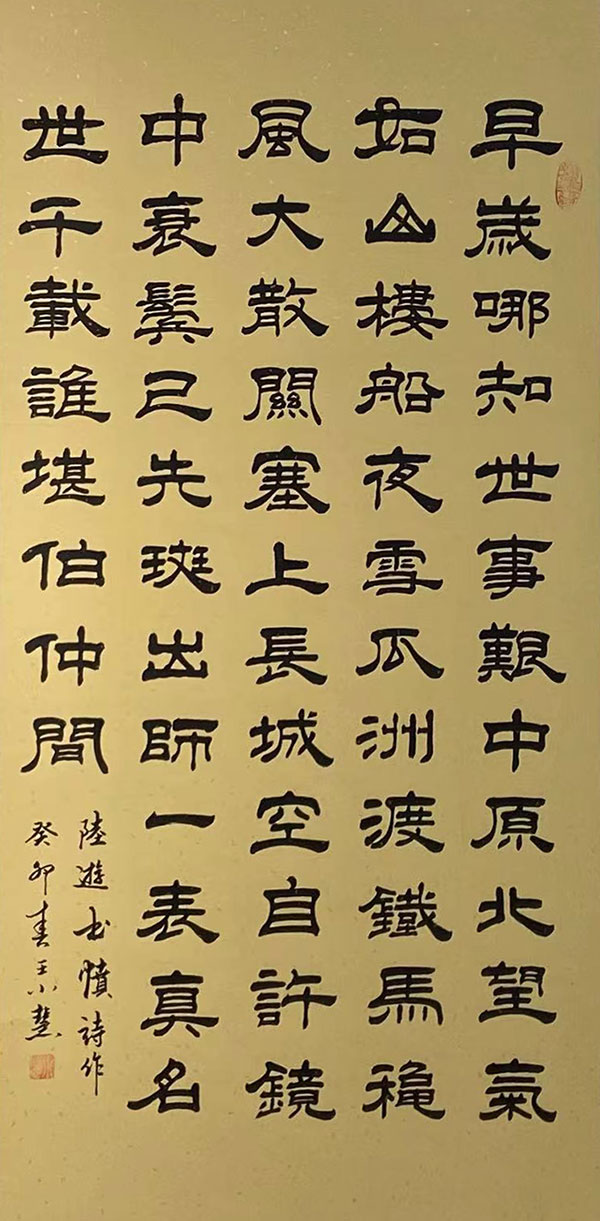 早歲哪知世事艱中原北望氣
如山樓船夜雪瓜洲渡鐵馬穐
風大散關塞上長城空自許鏡
中衰鬢已先斑出師一表真名
世千載誰堪伯仲間
陸遊书憤詩作
癸卯春王小慧